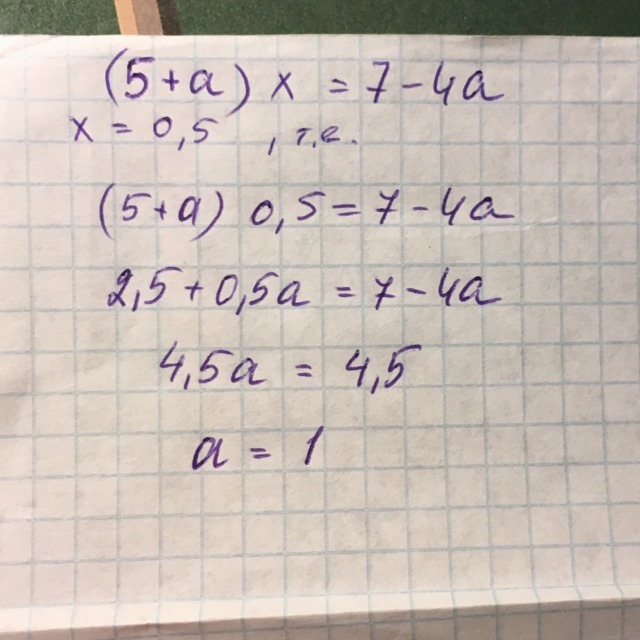 (5+a) x = 7-4a
x = 0,5 , т.е.
(5+a) 0,5 = 7-4a
2,5+0,5a = 7-4a
4,5a = 4,5
a = 1